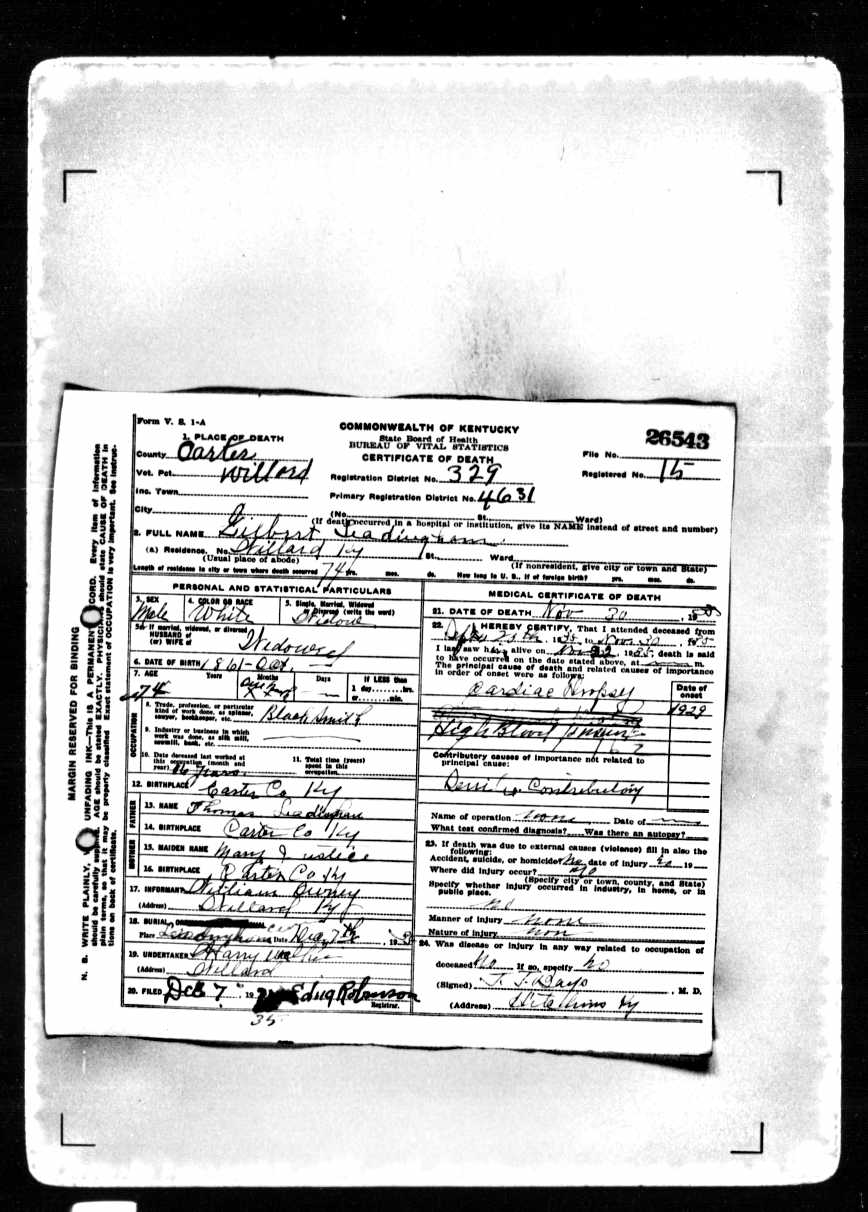 Form V. S. 1-A
COMMONWEALTH OF KENTUCKY
State Board of Health
BUREAU OF VITAL STATISTICS
CERTIFICATE OF DEATH
26543
File No.
Registered No. 15
1. PLACE OF DEATH
County Carter
Vot. Pct. Willard
Inc. Town
City
Registration District No. 329
Primary Registration District No. 4631
(No. St. Ward)
(If death occurred in a hospital or institution, give its NAME instead of street and number)
2. FULL NAME Gilbert Leadingham
(a) Residence. No. Willard Ky St., Ward
(Usual place of abode) (If nonresident, give city or town and State)
Length of residence in city or town where death occurred 74 yrs. mos. ds. How long in U. S., if of foreign birth? yrs. mos. ds.
PERSONAL AND STATISTICAL PARTICULARS
3. SEX Male
4. COLOR OR RACE White
5. Single, Married, Widowed or Divorced (write the word)
5a. If married, widowed, or divorced
HUSBAND of
(or) WIFE of
6. DATE OF BIRTH 1861-Oct.
7. AGE Years Months Days If LESS than
74
1 day hrs.
or min.
OCCUPATION
8. Trade, profession, or particular
kind of work done, as spinner,
sawyer, bookkeeper, etc. Black Smith
9. Industry or business in which
work was done, as silk mill,
sawmill, bank, etc.
10. Date deceased last worked at
this occupation (month and
year)
11. Total time (years)
spent in this
occupation.
12. BIRTHPLACE Carter Co Ky
FATHER
13. NAME Thomas Leadingham
14. BIRTHPLACE Carter Co Ky
MOTHER
15. MAIDEN NAME Mary Justice
16. BIRTHPLACE Carter Co Ky
17. INFORMANT William
(Address) Willard Ky
18. BURIAL,
Place Leadingham Date Dec 7th, 19
19. UNDERTAKER Harry
(Address) Willard
20. FILED Dec 7, 19 Robinson
Registrar.
35
MEDICAL CERTIFICATE OF DEATH
21. DATE OF DEATH Nov 30, 19
22. I HEREBY CERTIFY, That I attended deceased from
, 1935 to Nov 30, 1935
I last saw h alive on Nov 22, 1935, death is said
to have occurred on the date stated above, at m.
The principal cause of death and related causes of importance
in order of onset were as follows:
Date of
onset
Cardiac Dropsy
1929
High Blood pressure
Contributory causes of importance not related to
principal cause:
Contributory
Name of operation none Date of
What test confirmed diagnosis? Was there an autopsy?
23. If death was due to external causes (violence) fill in also the
following:
Accident, suicide, or homicide? No date of injury no 19
Where did injury occur? no
(Specify city or town, county, and State)
Specify whether injury occurred in industry, in home, or in
public place.
no
Manner of injury none
Nature of injury non
24. Was disease or injury in any way related to occupation of
deceased? No If so, specify no
(Signed) T. J. Bays, M. D.
(Address) Hitchins Ky
MARGIN RESERVED FOR BINDING
N. B. WRITE PLAINLY, UNFADING INK—This is a PERMANENT RECORD. Every item of information
should be carefully supplied. AGE should be stated EXACTLY. PHYSICIANS should state CAUSE OF DEATH in
plain terms, so that it may be properly classified. Exact statement of OCCUPATION is very important. See instruc-
tions on back of certificate.